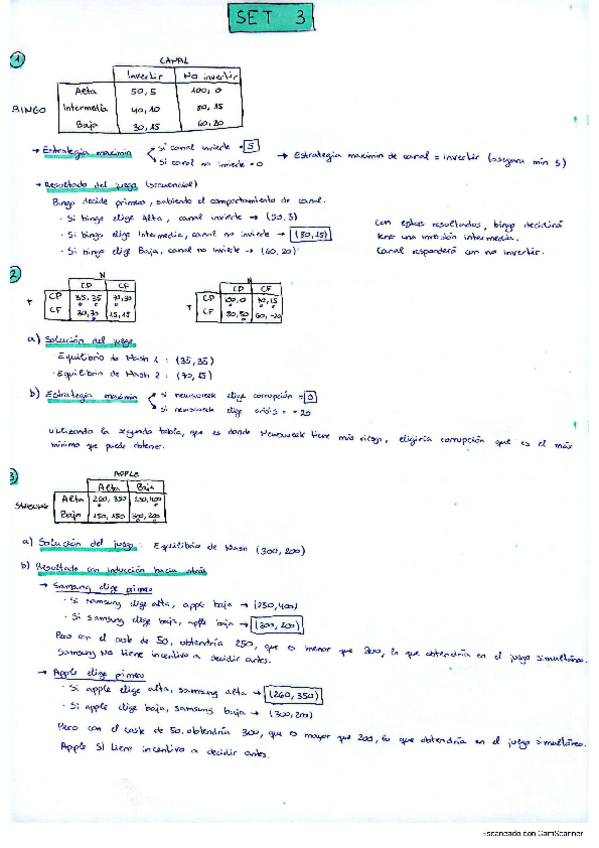 SET 3
1
CANAL
Invertir No invertir
Alta 50, 5 100, 0
BINGO Intermedia 40, 10 80, 15
Baja 30, 15 60, 20
→ Estrategia maximin si canal invierte = 5
si canal no invierte = 0
→ Estrategia maximin de canal = invertir (asegura min 5)
→ Resultado del juego (secuencial)
Bingo decide primero, sabiendo el comportamiento de canal.
· Si bingo elige Alta, canal invierte → (50, 5)
· Si bingo elige Intermedia, canal no invierte → (80, 15)
· Si bingo elige Baja, canal no invierte → (60, 20)
Con estos resultados, bingo decidirá
tener una inversión intermedia.
Canal responderá con no invertir.
2
N
CP CF
T CP 35, 35 70, 30
CF 30, 70 15, 15
N
CP CF
T CP 70, 15
CF 60, -20
a) Solución del juego
· Equilibrio de Nash 1 : (35, 35)
· Equilibrio de Nash 2 : (70, 15)
b) Estrategia maximin si newsweek elige corrupción = 0
si newsweek elige crisis = - 20
Utilizando la segunda tabla, que es donde Newsweek tiene más riesgo, eligiría corrupción que es el máx
mínimo que puede obtener.
3
APPLE
Alta Baja
SAMSUNG Alta 260, 350 250, 400
Baja 150, 150 300, 200
a) Solución del juego : Equilibrio de Nash (300, 200)
b) Resultado con inducción hacia atrás
→ Samsung elige primero
· Si samsung elige alta, apple baja → (250, 400)
· Si samsung elige baja, apple baja → (300, 200)
Pero con el coste de 50, obtendría 250, que es menor que 300, lo que obtendría en el juego simultáneo.
Samsung NO tiene incentivo a decidir antes.
→ Apple elige primero
· Si apple elige alta, samsung alta → (260, 350)
· Si apple elige baja, samsung baja → (300, 200)
Pero con el coste de 50, obtendría 300, que es mayor que 200, lo que obtendría en el juego simultáneo.
Apple SI tiene incentivo a decidir antes.
Escaneado con CamScanner